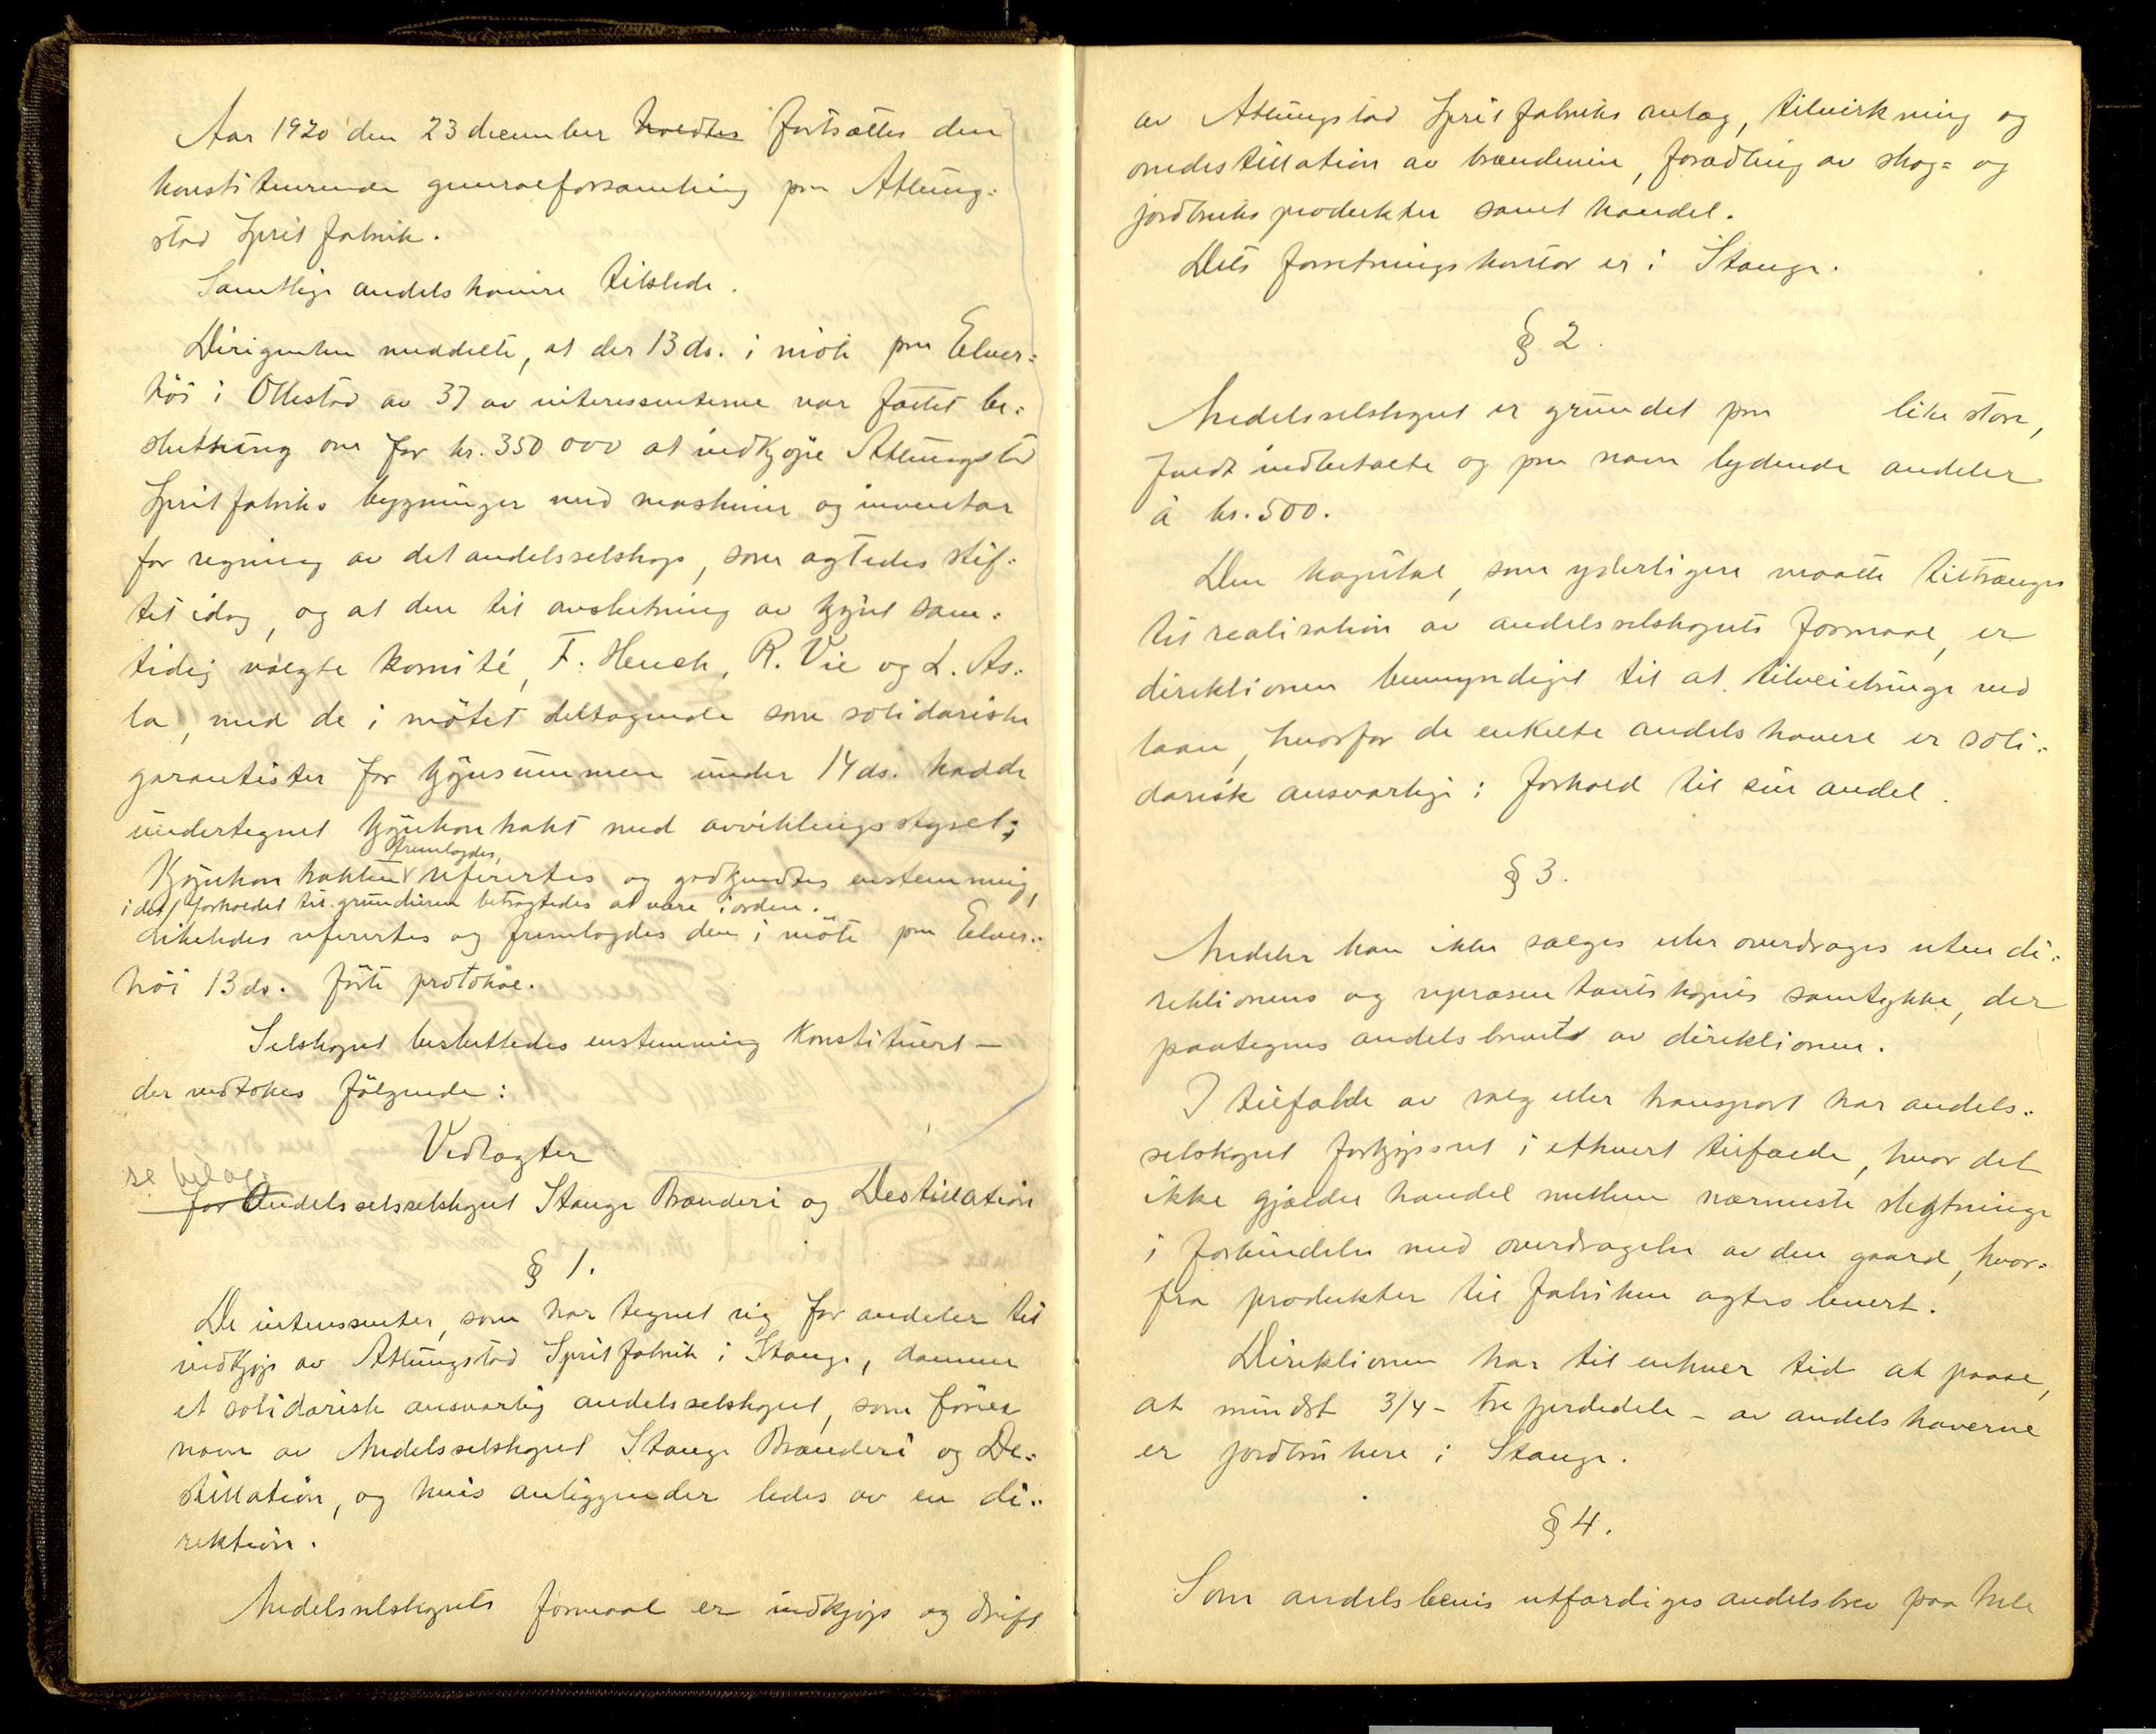 Aar 1920 den 23 december holdtes fortsattes den
konstituerende generalforsamling paa Atlung=
stad Spritfabrik.
Samtlige andelshavere tilstede.
Dirigenten meddelte, at der 13 ds. i møte paa Elver=
høi i Ottestad av 37 av interessenterne var fattet be=
slutning om for kr. 350 000 at indkjøpe Atlungstad
Spritfabriks bygninger med maskiner og inventar
for regning av det andelsselskap, som agtedes stif=
tet idag, og at den til avslutning av kjøpet sam=
tidig valgte komité, F. Heuch, R. Vie og L. As=
la, med de i møtet deltagende som solidariske
garantister for kjøpesummen under 14 ds. hadde
undertegnet kjøpekontrakt med avviklingsstyret;
fremlagdes,
Kjøpekontrakten refereertes og godkjendtes enstemmig,
idet forholdet til grundeieren betragtedes at være i orden.
Likeledes refereertes og fremlagdes den i møte paa Elver=
høi 13 ds. førte protokol.
Selskapet besluttedes enstemmig konstituert —
der vedtokes følgende:
Vedtægter
se bilag
for Andelsselsselskapet Stange Brænderi og Destillation
§ 1.
De interessenter, som har tegnet sig for andeler til
indkjøp av Atlungstad Spritfabrik i Stange, danner
et solidarisk ansvarlig andelsselskapet, som fører
navn av Andelsselskapet Stange Brænderi og De=
stillation, og hvis anliggender ledes av en di=
rektion.
Andelsselskapets formaal er indkjøp og drift
av Atlungstad Spritfabriks anlæg, tilvirkning og
omdestillation av brændevin, forædling av skog= og
jordbruksprodukter samt handel.
Dets forretningskontor er i Stange.
§ 2.
Andelsselskapet er grundet paa like store,
fuldt indbetalte og paa navn lydende andeler
à kr. 500.
Den kapital, som yderligere maatte tiltrænges
til realisation av andelsselskapets formaal, er
direktionen bemyndiget til at tilveiebringe ved
laan, hvorfor de enkelte andelshavere er soli=
darisk ansvarlige i forhold til sin andel.
§ 3.
Andeler kan ikke sælges eller overdrages uten di=
rektionens og representantskapets samtykke, der
paategnes andelsbrevet av direktionen.
I tilfælde av salg eller transport har andels=
selskapet forkjøpsret i ethvert tilfælde, hvor det
ikke gjælder handel mellem nærmeste slegtninge
i forbindelse med overdragelse av den gaard, hvor=
fra produkter til fabriken agtes levert.
Direktionen har til enhver tid at paase,
at mindst 3/4 - tre fjerdedele - av andelshaverne
er jordbrukere i Stange.
§ 4.
Som andelsbevis utfærdiges andelsbrev paa hele